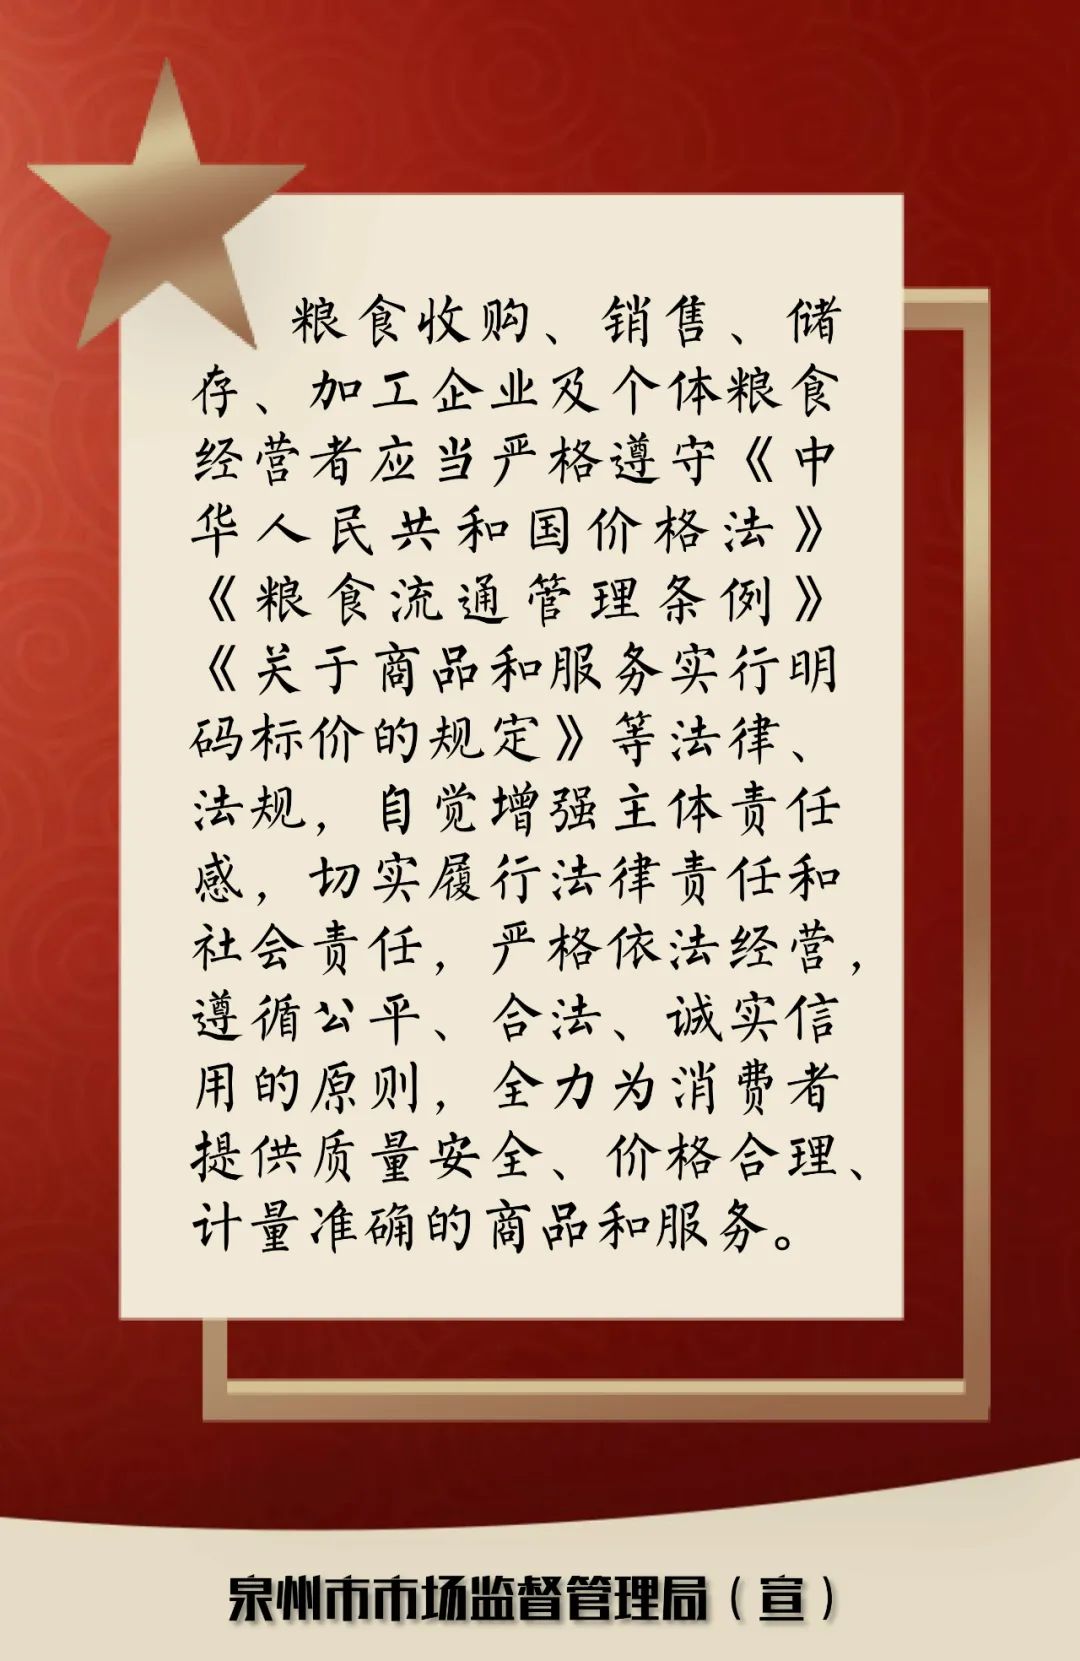 粮食收购、销售、储
存、加工企业及个体粮食
经营者应当严格遵守《中
华人民共和国价格法》
《粮食流通管理条例》
《关于商品和服务实行明
码标价的规定》等法律、
法规，自觉增强主体责任
感，切实履行法律责任和
社会责任，严格依法经营，
遵循公平、合法、诚实信
用的原则，全力为消费者
提供质量安全、价格合理、
计量准确的商品和服务。
泉州市市场监督管理局（宣）